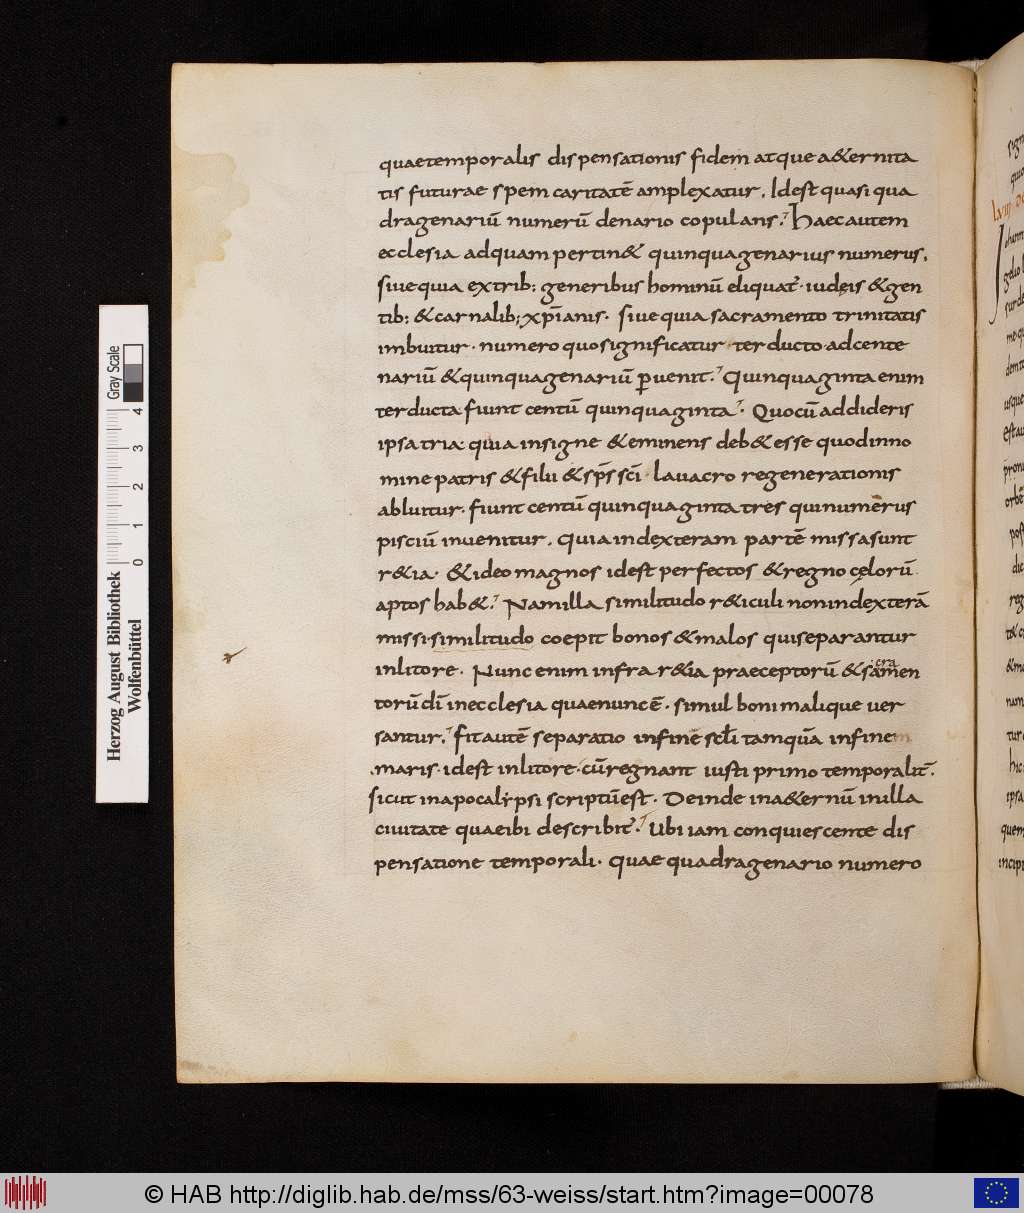 quaetemporalis dispensationis fidem atque a&ernita
tis futurae spem caritatē amplexatur. Idest quasi qua
dragenariū numerū denario copulans. Haec autem
ecclesia adquam pertin& quinquagenarius numerus.
siue quia ex trib; generibus hominū eliquat̄. iudęis &gen
tib; &carnalib; xp̄ianis. siue quia sacramento trinitatis
imbuitur. numero quo significatur terducto adcente
nariū &quinquagenariū ꝑuenit. Quinquaginta enim
terducta fiunt centū quinquaginta. Quocū addideris
ipsa tria quia insigne &eminens deb& esse quodinno
mine patris &filii &sp̄s sc̄i lauacro regenerationis
abluitur. fiunt centū quinquaginta tres qui numerus
pisciū inuenitur. quia indexteram partē missa sunt
r&ia. &ideo magnos idest perfectos &regno cęlorū
aptos hab&. Nam illa similitudo r&iculi non indexterā
missi. similitudo coepit bonos &malos qui separantur
inlitore. Nunc enim infra r&ia praeceptorū &sacramen
torū dī inecclesia quae nunc ē. simul boni malique uer
santur. fit autē separatio infine sc̄li tamquā infinem
maris. idest inlitore. cū regnant iusti primo temporalit̄.
sicut inapocalypsi scriptū est. Deinde ina&ernū inilla
ciuitate quae ibi describit̄. Ubi iam conquiescente dis
pensatione temporali. quae quadragenario numero
Herzog August Bibliothek
Wolfenbüttel
Gray Scale
0 1 2 3 4
© HAB http://diglib.hab.de/mss/63-weiss/start.htm?image=00078